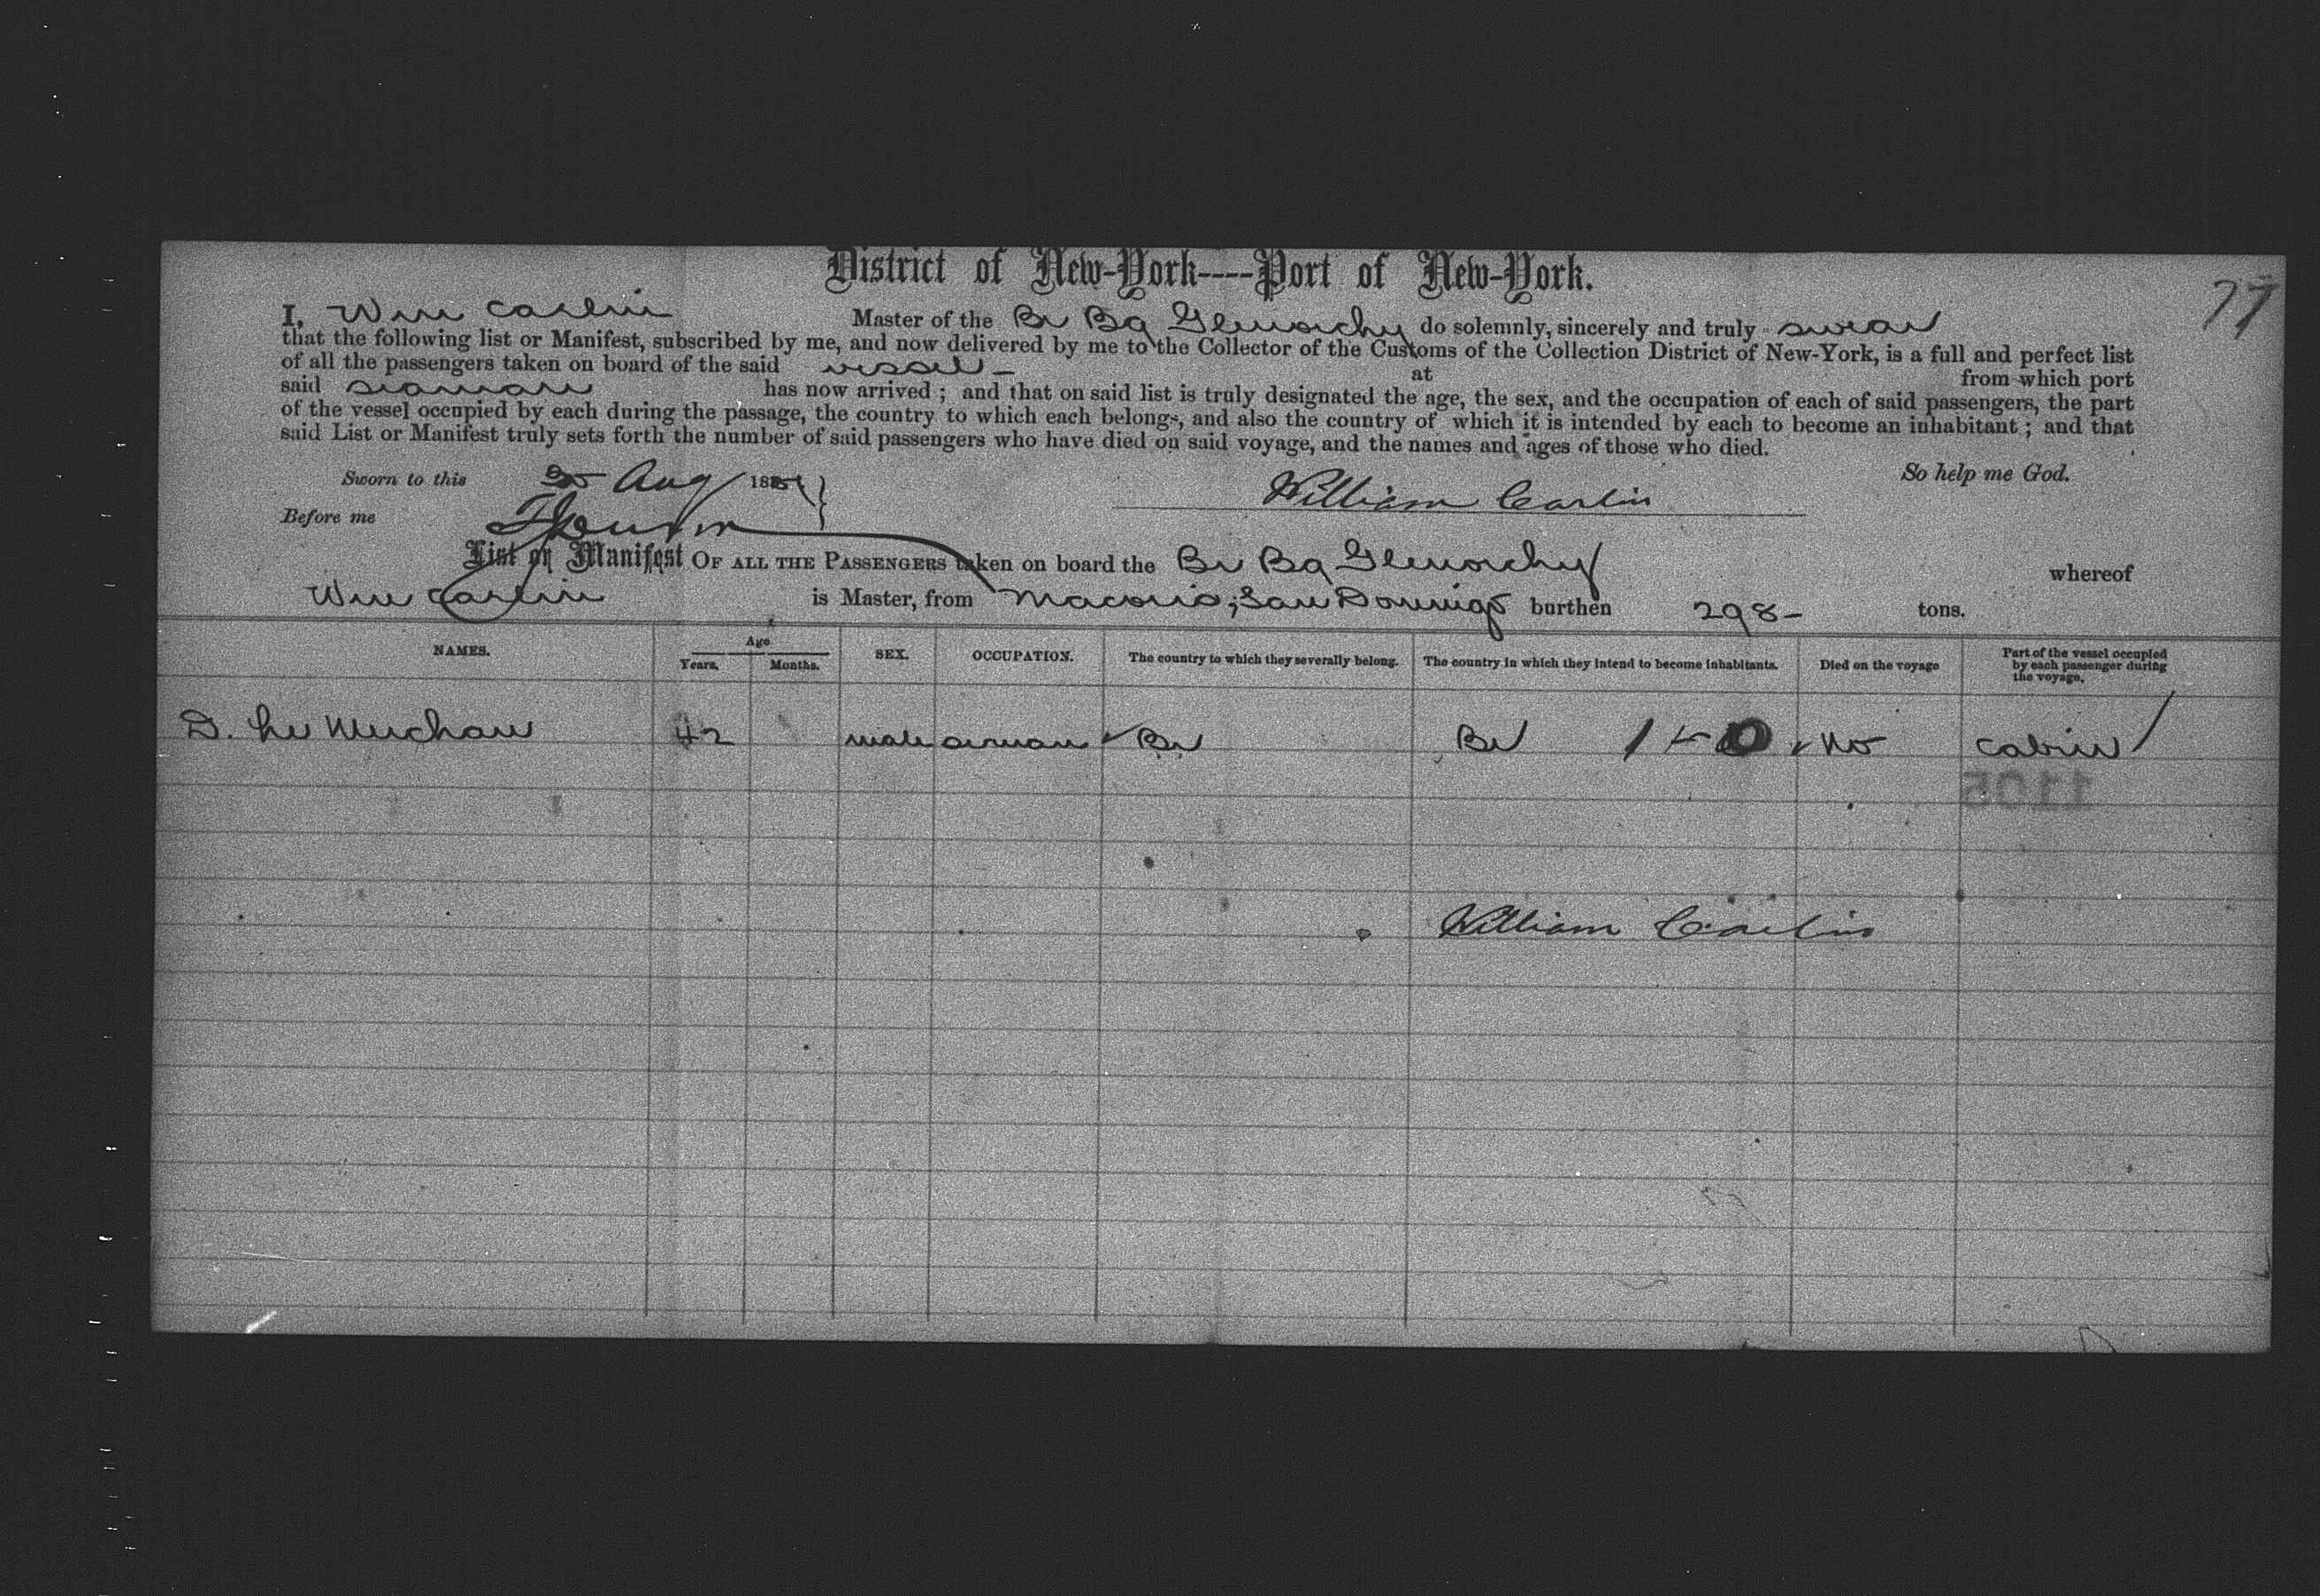 District of New-York----Port of New-York.
77
I, Wm Carlin Master of the Br Bg Glenorchy do solemnly, sincerely and truly swear
that the following list or Manifest, subscribed by me, and now delivered by me to the Collector of the Customs of the Collection District of New-York, is a full and perfect list
of all the passengers taken on board of the said vessel - at from which port
said seaman has now arrived; and that on said list is truly designated the age, the sex, and the occupation of each of said passengers, the part
of the vessel occupied by each during the passage, the country to which each belongs, and also the country of which it is intended by each to become an inhabitant; and that
said List or Manifest truly sets forth the number of said passengers who have died on said voyage, and the names and ages of those who died.
Sworn to this Aug 188 So help me God.
William Carlin
Before me
List or Manifest OF ALL THE PASSENGERS taken on board the Br Bg Glenorchy whereof
Wm Carlin is Master, from Macoris, San Domingo burthen 298- tons.
NAMES. Age Years, Months. SEX. OCCUPATION. The country to which they severally belong. The country in which they intend to become inhabitants. Died on the voyage Part of the vessel occupied by each passenger during the voyage.
D. Le 42 male Br Br No cabin
1195
William Carlin